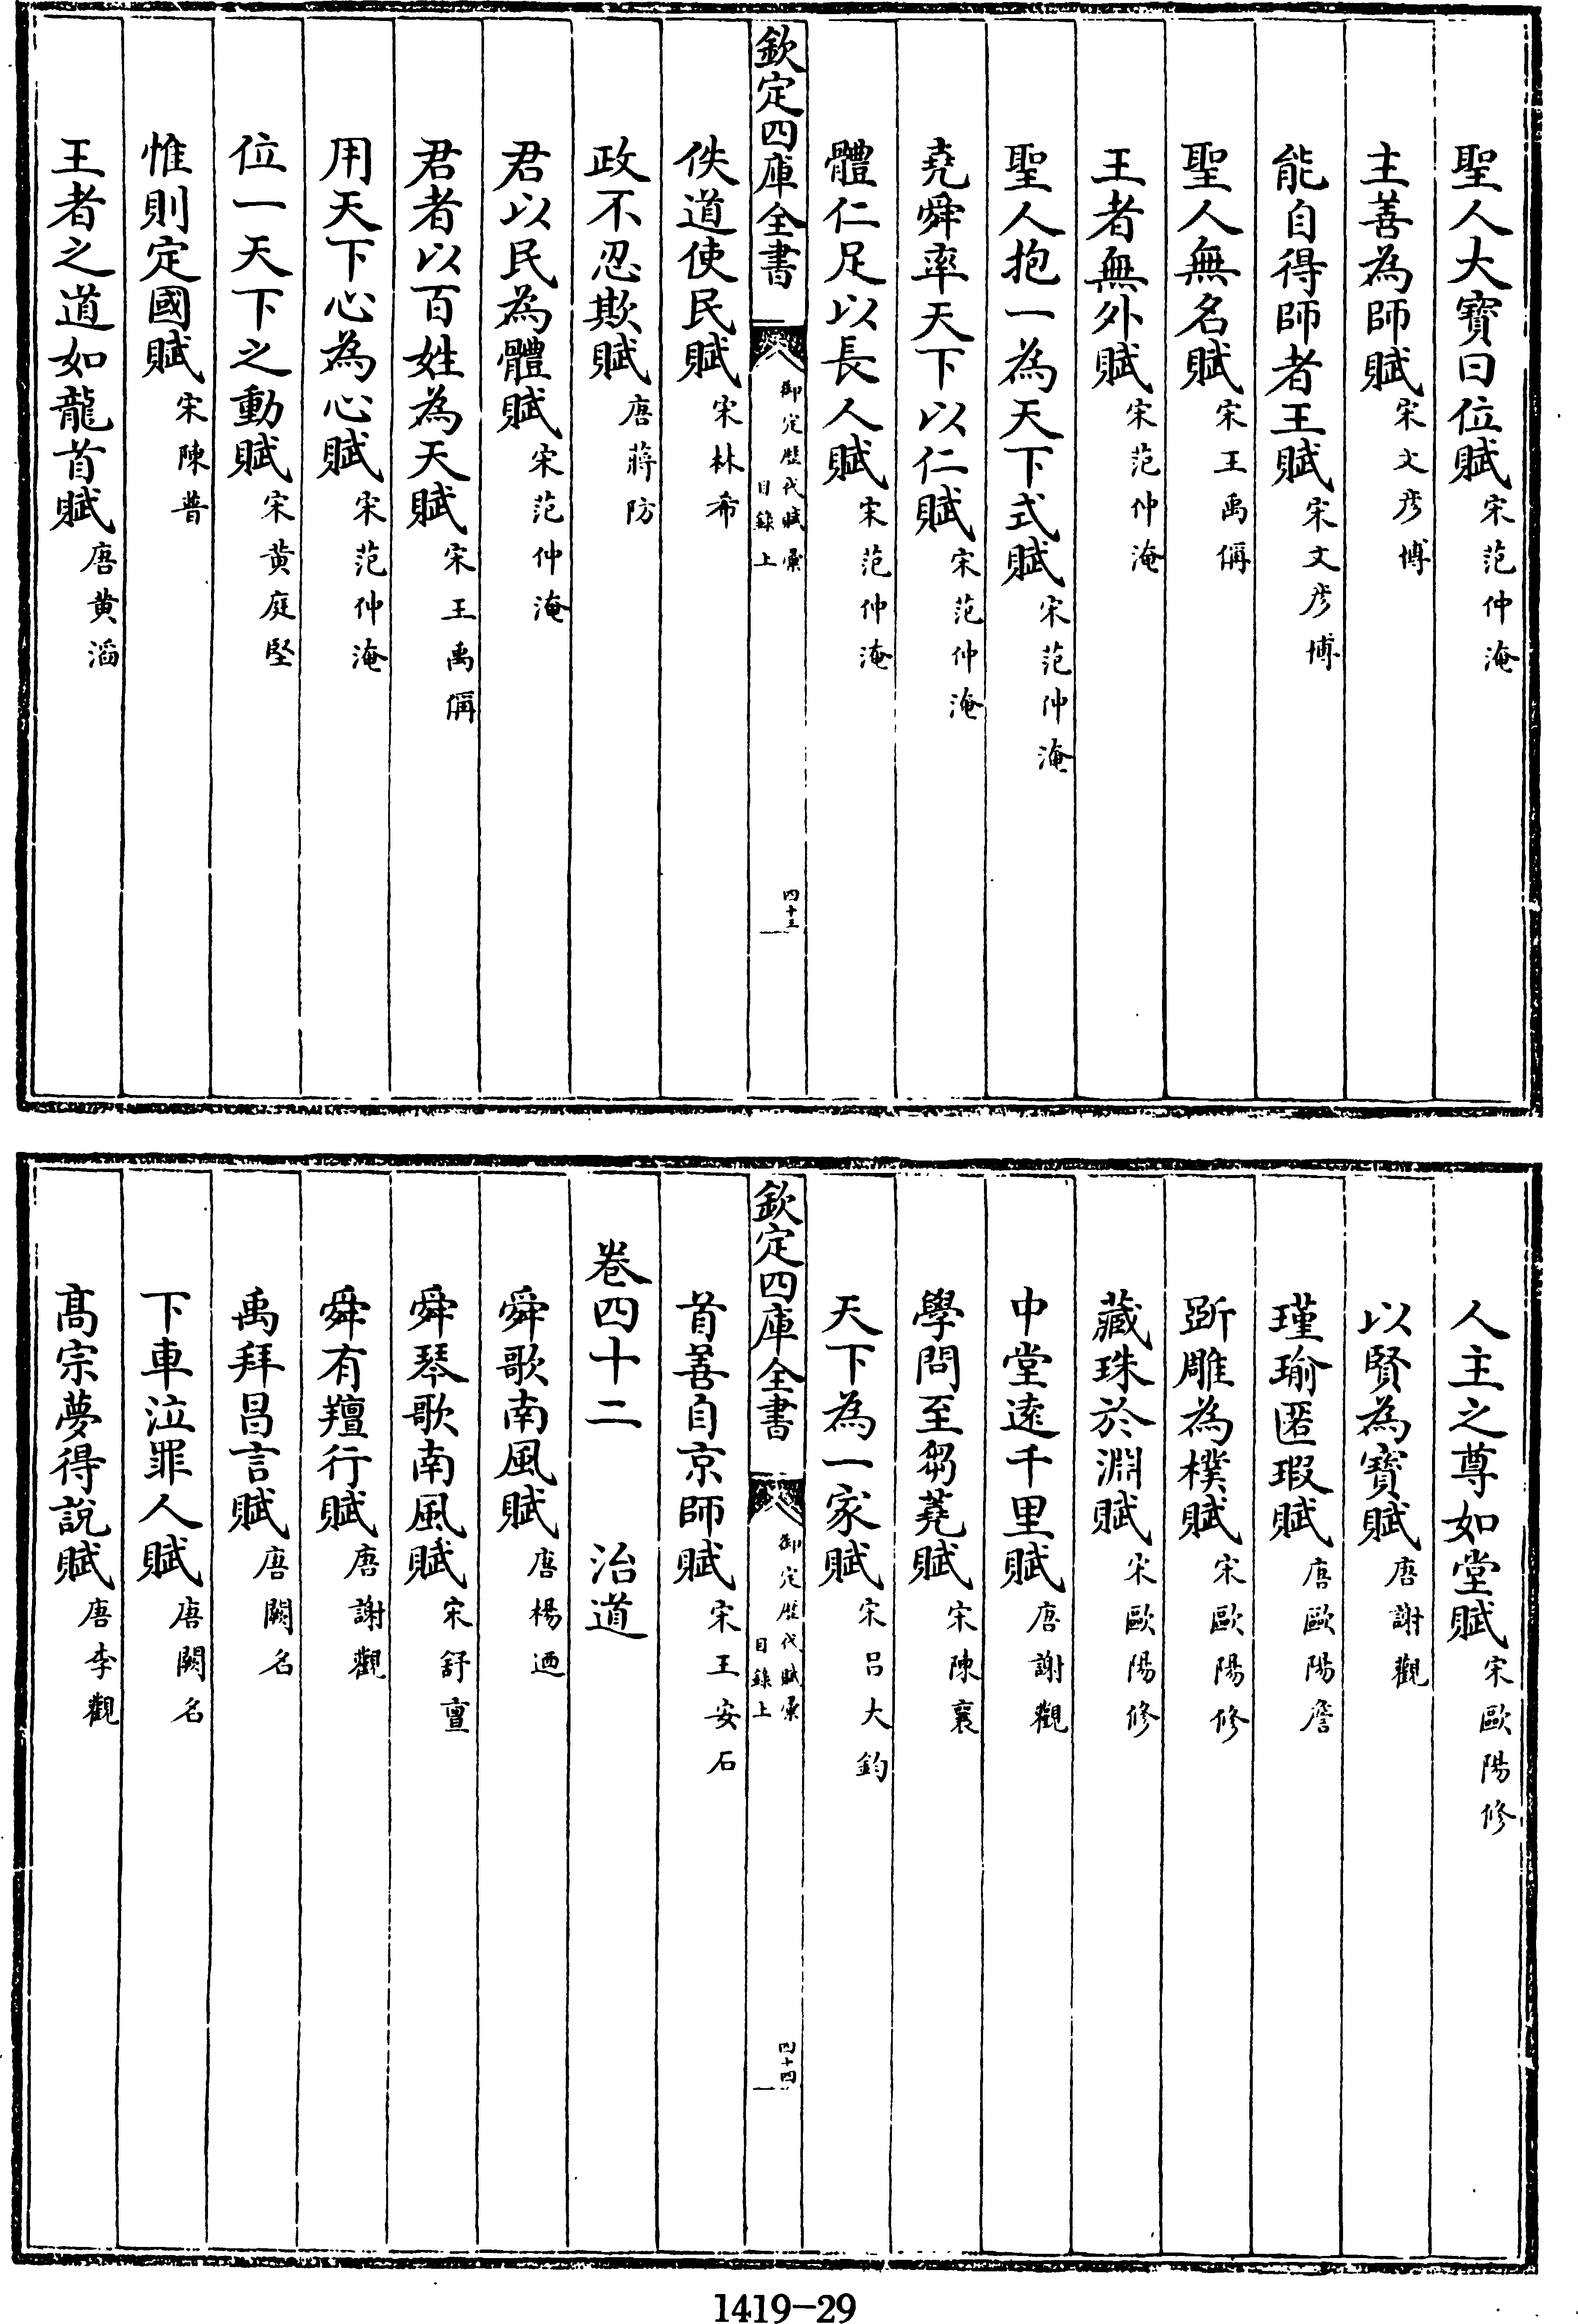 聖人大寶曰位賦宋范仲淹
主善為師賦宋文彦博
能自得師者王賦宋文彦博
聖人無名賦宋王禹偁
王者無外賦宋范仲淹
聖人抱一為天下式賦宋范仲淹
堯舜率天下以仁賦宋范仲淹
體仁足以長人賦宋范仲淹
欽定四庫全書
御定歷代賦彙
目錄上
四十三
佚道使民賦宋林希
政不忍欺賦唐蔣防
君以民為體賦宋范仲淹
君者以百姓為天賦宋王禹偁
用天下心為心賦宋范仲淹
位一天下之動賦宋黄庭堅
惟則定國賦宋陳普
王者之道如龍首賦唐黄滔
人主之尊如堂賦宋歐陽修
以賢為寶賦唐謝觀
瑾瑜匿瑕賦唐歐陽詹
斲雕為樸賦宋歐陽修
藏珠於淵賦宋歐陽修
中堂遠千里賦唐謝觀
學問至芻蕘賦宋陳襄
天下為一家賦宋吕大鈞
欽定四庫全書
御定歷代賦彙
目錄上
四十四
首善自京師賦宋王安石
卷四十二 治道
舜歌南風賦唐楊迺
舜琴歌南風賦宋舒亶
舜有羶行賦唐謝觀
禹拜昌言賦唐闕名
下車泣罪人賦唐闕名
髙宗夢得說賦唐李觀
1419-29